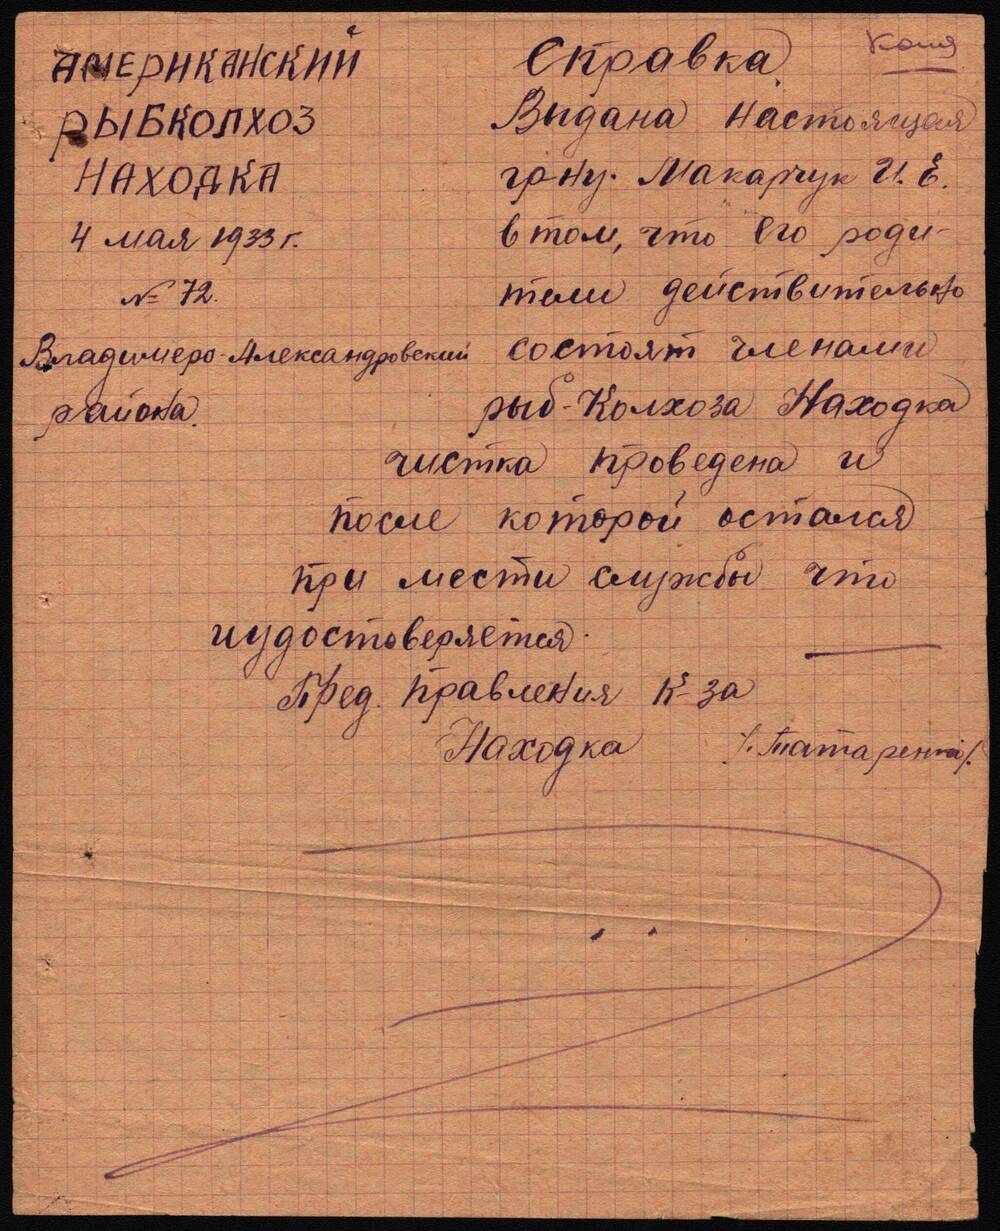 АМЕРИКАНСКИЙ
РЫБКОЛХОЗ
НАХОДКА
4 мая 1933 г.
№ 72.
Владимиро-Александровский
района.
Копия
Справка
Выдана настоящая
гр-ну. Макарчук И. Е.
в том, что его роди-
тели действительно
состоят членами
рыб-Колхоза Находка
чистка проведена и
после которой остался
при мести службы что
иудостоверяется.
Пред. Правления К-за
Находка /. Татаренко/.